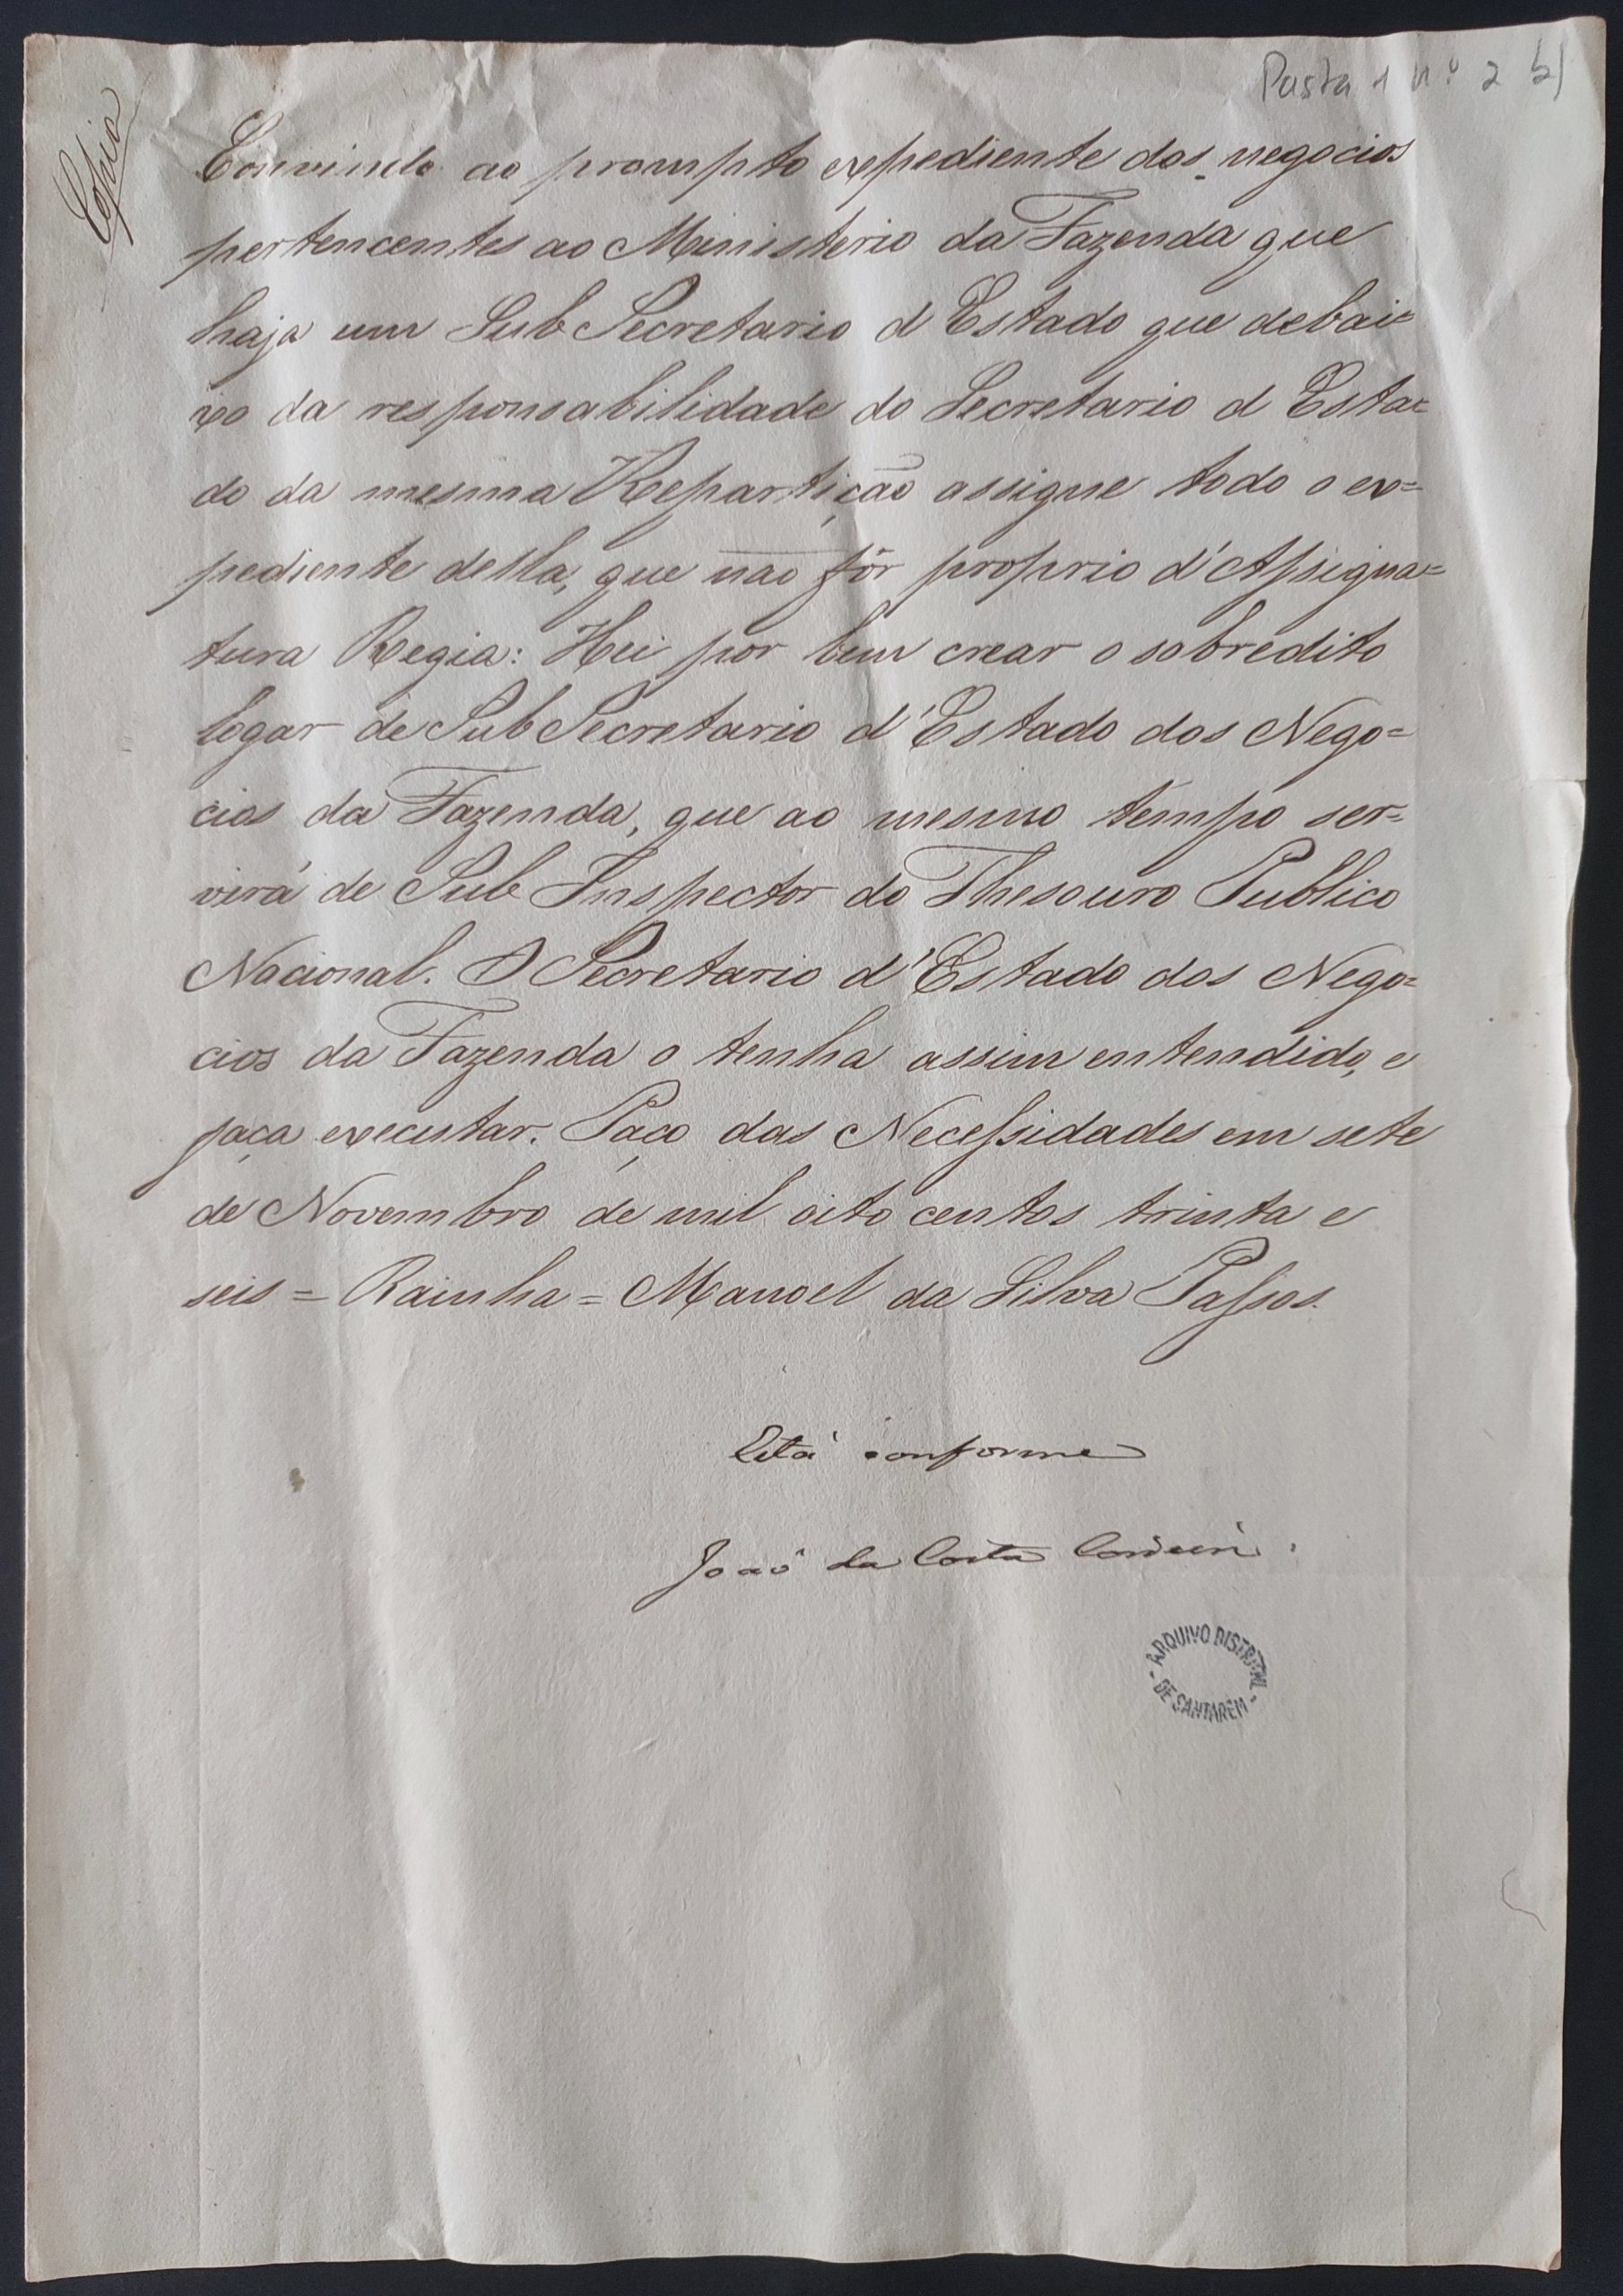 Pasta 1 nº 2 b)
Copia
Convindo ao prompto expediente dos negocios
pertencentes ao Ministerio da Fazenda que
haja um Sub Secretario d Estado que debai=
xo da responsabilidade do Secretario d Esta=
do da mesma Repartição assigne todo o ex=
pediente della, que não fôr proprio d'Assigna=
tura Regia: Hei por bem crear o sobredito
logar de Sub Secretario d'Estado dos Nego=
cios da Fazenda, que ao mesmo tempo ser=
virá de Sub Inspector do Thesouro Publico
Nacional. O Secretario d'Estado dos Nego=
cios da Fazenda o tenha assim entendido, e
faça executar. Paço das Necessidades em sete
de Novembro de mil oito centos trinta e
seis = Rainha = Manoel da Silva Passos.
Está conforme
João da Costa Cordeiro.
ARQUIVO DISTRITAL
DE SANTARÉM